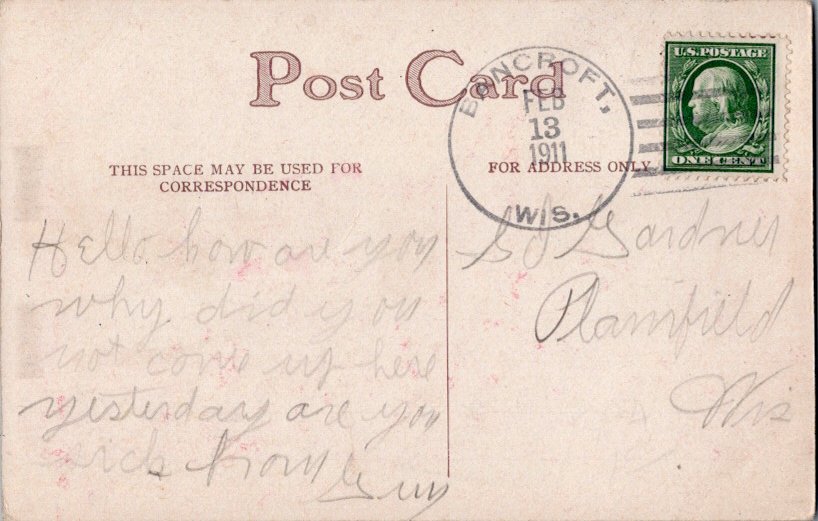 Post Card
BANCROFT,
FEB
13
1911
WIS.
U.S. POSTAGE
ONE CENT
THIS SPACE MAY BE USED FOR
CORRESPONDENCE
FOR ADDRESS ONLY
Hello how are you
why did you
not come up here
yesterday are you
sick from
Guy
Ed Gardner
Plainfield
Wis